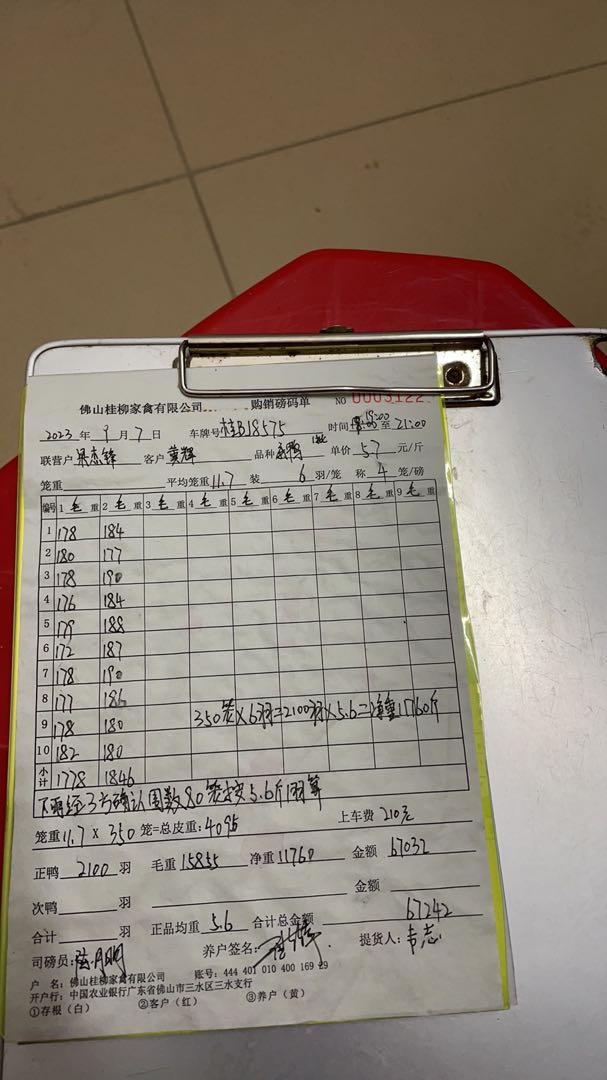 佛山桂柳家禽有限公司 购销磅码单 NO 0003122
2023 年 9 月 7 日 车牌号 桂B18575 时间 19:00 至 21:00
联营户 客户 黄辉 品种 单价 5.7 元/斤
笼重 平均笼重 11.7 装 6 羽/笼 称 4 笼/磅
编号 1 毛重 2 毛重 3 毛重 4 毛重 5 毛重 6 毛重 7 毛重 8 毛重 9 毛重
1 178 184
2 180 177
3 178 190
4 176 184
5 179 188
6 172 187
7 178 190
8 177 186
350笼×6羽=2100羽×5.6=净重11760斤
9 178 180
10 182 180
小计 1778 1846
下雨经3方确认围数80笼按5.6斤/羽算
笼重 11.7 × 350 笼=总皮重: 4095 上车费 210元
正鸭 2100 羽 毛重 15855 净重 11760 金额 67032
次鸭 羽 金额
合计 羽 正品均重 5.6 合计总金额 67242
司磅员: 养户签名: 提货人: 韦志
户 名: 佛山桂柳家禽有限公司 账号: 444 401 010 400 169 29
开户行: 中国农业银行广东省佛山市三水区三水支行
①存根（白） ②客户（红） ③养户（黄）